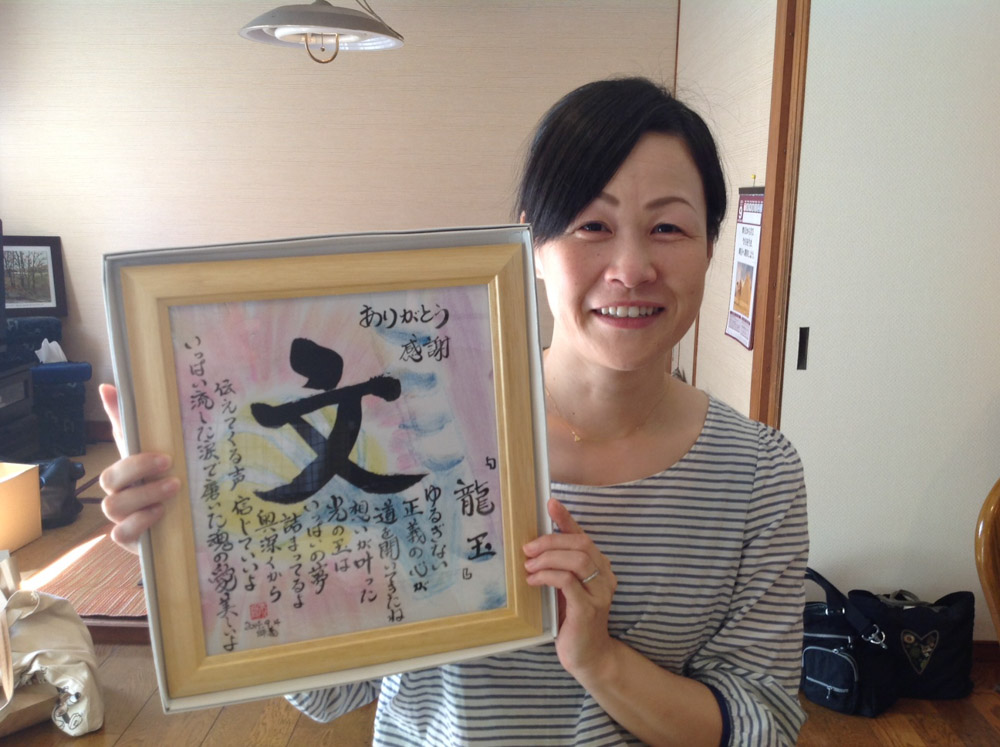 ありがとう
感謝
文
「龍玉」
ゆるぎない
正義の心が
道を開いてきたね
想いが叶った
光の玉は
いっぱいの
詰まってるよ
奥深くから
伝えてくる声 信じていいよ
いっぱい流した涙で磨いた魂の 美しいよ
9